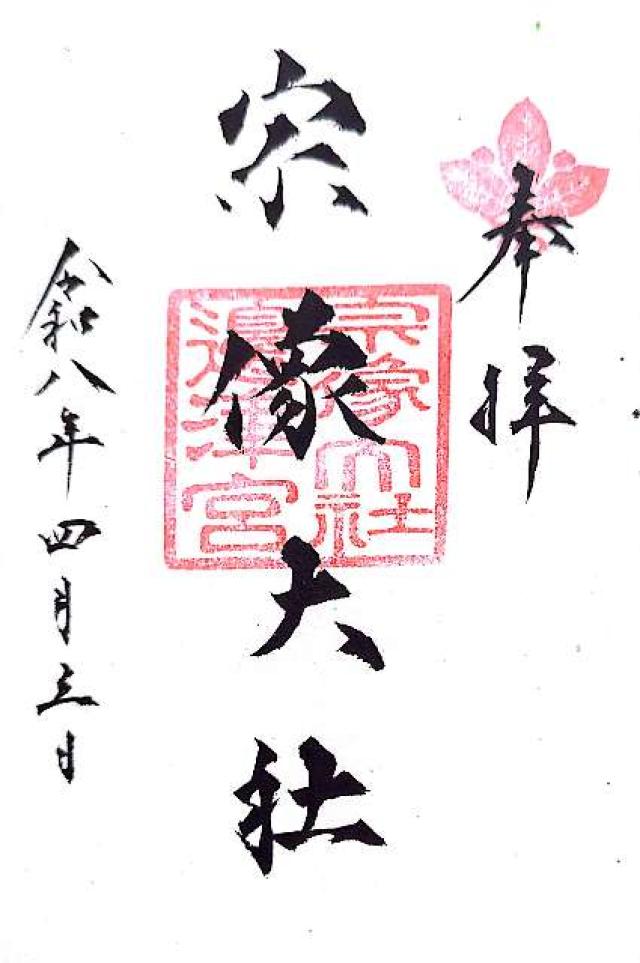 奉拝
宗像大社
宗像大社
邊津宮
令和八年四月三日